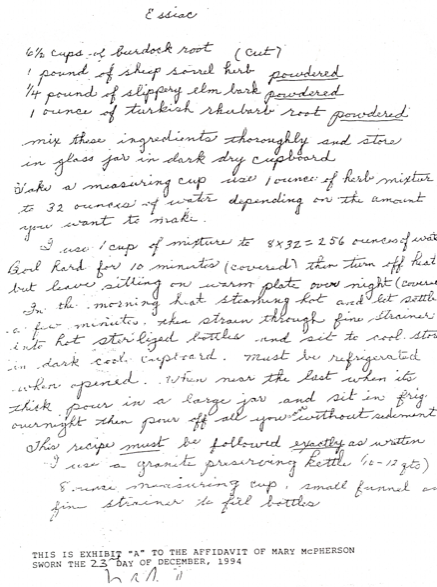 Essiac
6½ cups of burdock root (cut)
1 pound of sheep sorrel herb powdered
¼ pound of slippery elm bark powdered
1 ounce of turkish rhubarb root powdered
mix these ingredients thoroughly and store
in glass jar in dark dry cupboard
Take a measuring cup use 1 ounce of herb mixture
to 32 ounces of water depending on the amount
you want to make.
I use 1 cup of mixture to 8x32=256 ounces of wate
Boil hard for 10 minutes (covered) then turn off heat
but leave sitting on warm plate over night (covere
In the morning heat steaming hot and let settle
a few minutes, then strain through fine strainer
into hot sterilized bottles and sit to cool. stor
in dark cool cupboard. must be refrigerated
when opened. When near the last when its
thick pour in a large jar and sit in frig
overnight then pour off all you can without sediment
This recipe must be followed exactly as written
I use a granite preserving kettle (10-12 qts)
8 ounce measuring cup, small funnel an
fine strainer to fill bottles
THIS IS EXHIBIT "A" TO THE AFFIDAVIT OF MARY McPHERSON
SWORN THE 23rd DAY OF DECEMBER, 1994